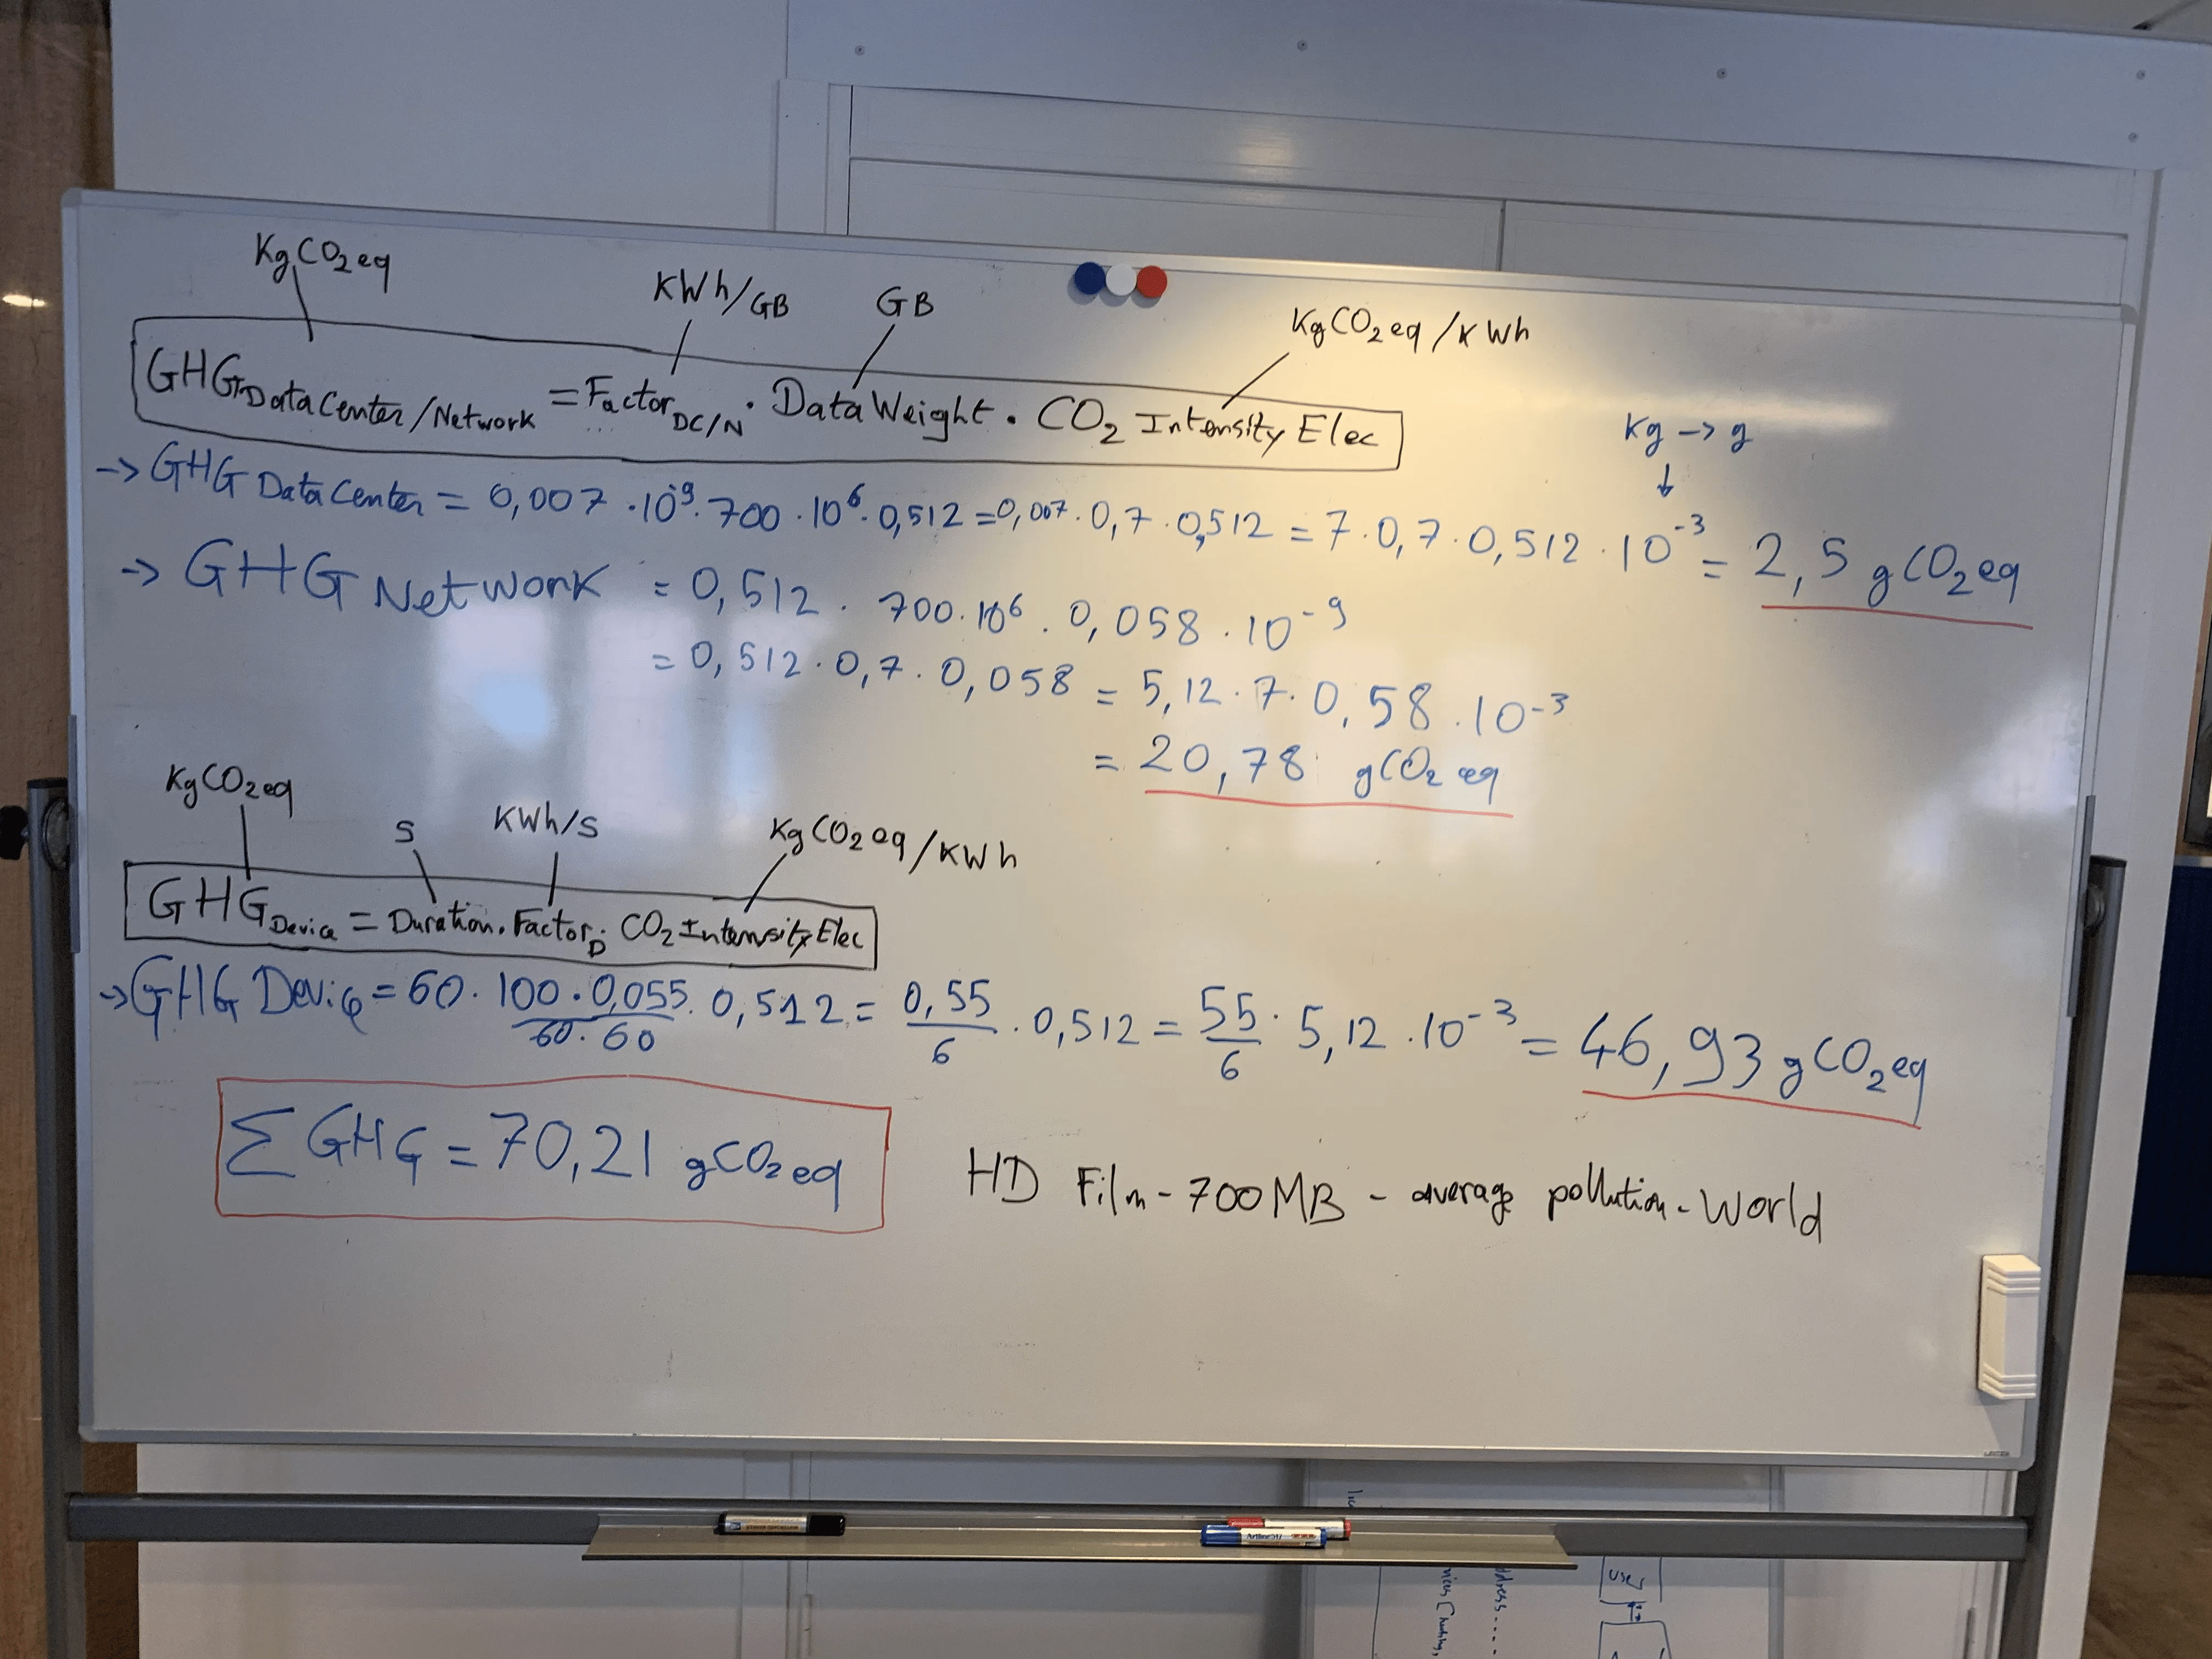 KgCO₂eq
KWh/GB
GB
KgCO₂eq/KWh
GHG DataCenter/Network = Factor DC/N · DataWeight · CO₂ Intensity Elec
Kg -> g
↓
-> GHG DataCenter = 0,007 · 10⁻⁹ · 700 · 10⁶ · 0,512 = 0,007 · 0,7 · 0,512 = 7 · 0,7 · 0,512 · 10⁻³ = 2,5 gCO₂eq
-> GHG Network = 0,512 · 700 · 10⁶ · 0,058 · 10⁻⁹
= 0,512 · 0,7 · 0,058 = 5,12 · 7 · 0,58 · 10⁻³
= 20,78 gCO₂eq
KgCO₂eq
S
KWh/S
KgCO₂eq/KWh
GHG Device = Duration · Factor D · CO₂ Intensity Elec
-> GHG Device = 60 · 100 · 0,055 / 60 · 60 · 0,512 = 0,55 / 6 · 0,512 = 55 / 6 · 5,12 · 10⁻³ = 46,93 gCO₂eq
Σ GHG = 70,21 gCO₂eq
HD Film - 700MB - average pollution - World
Artline
dress....
USE